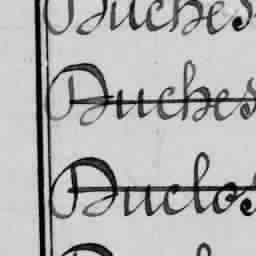 Duches
Duches
Duclos